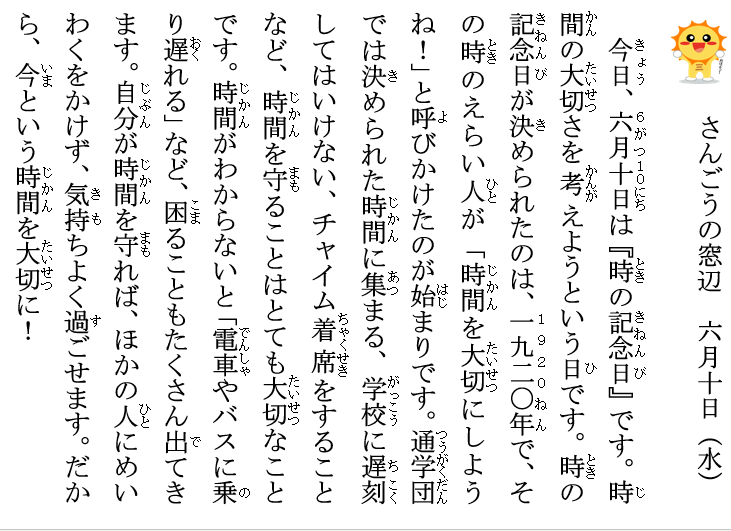 さんごうの窓辺　六月十日（水）
今日、六月十日は『時の記念日』です。時
間の大切さを考えようという日です。時の
記念日が決められたのは、一九二〇年で、そ
の時のえらい人が「時間を大切にしよう
ね！」と呼びかけたのが始まりです。通学団
では決められた時間に集まる、学校に遅刻
してはいけない、チャイム着席をすること
など、時間を守ることはとても大切なこと
です。時間がわからないと「電車やバスに乗
り遅れる」など、困ることもたくさん出てき
ます。自分が時間を守れば、ほかの人にめい
わくをかけず、気持ちよく過ごせます。だか
ら、今という時間を大切に！